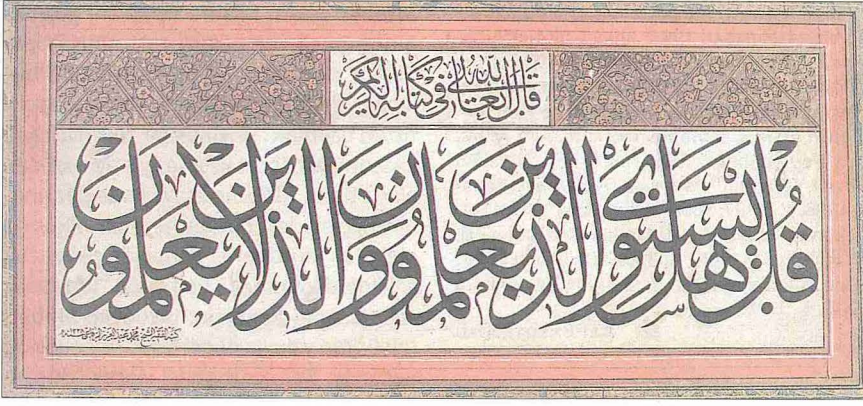 قال الله تعالى في كتابه الكريم
قل هل يستوي الذين يعلمون والذين لا يعلمون